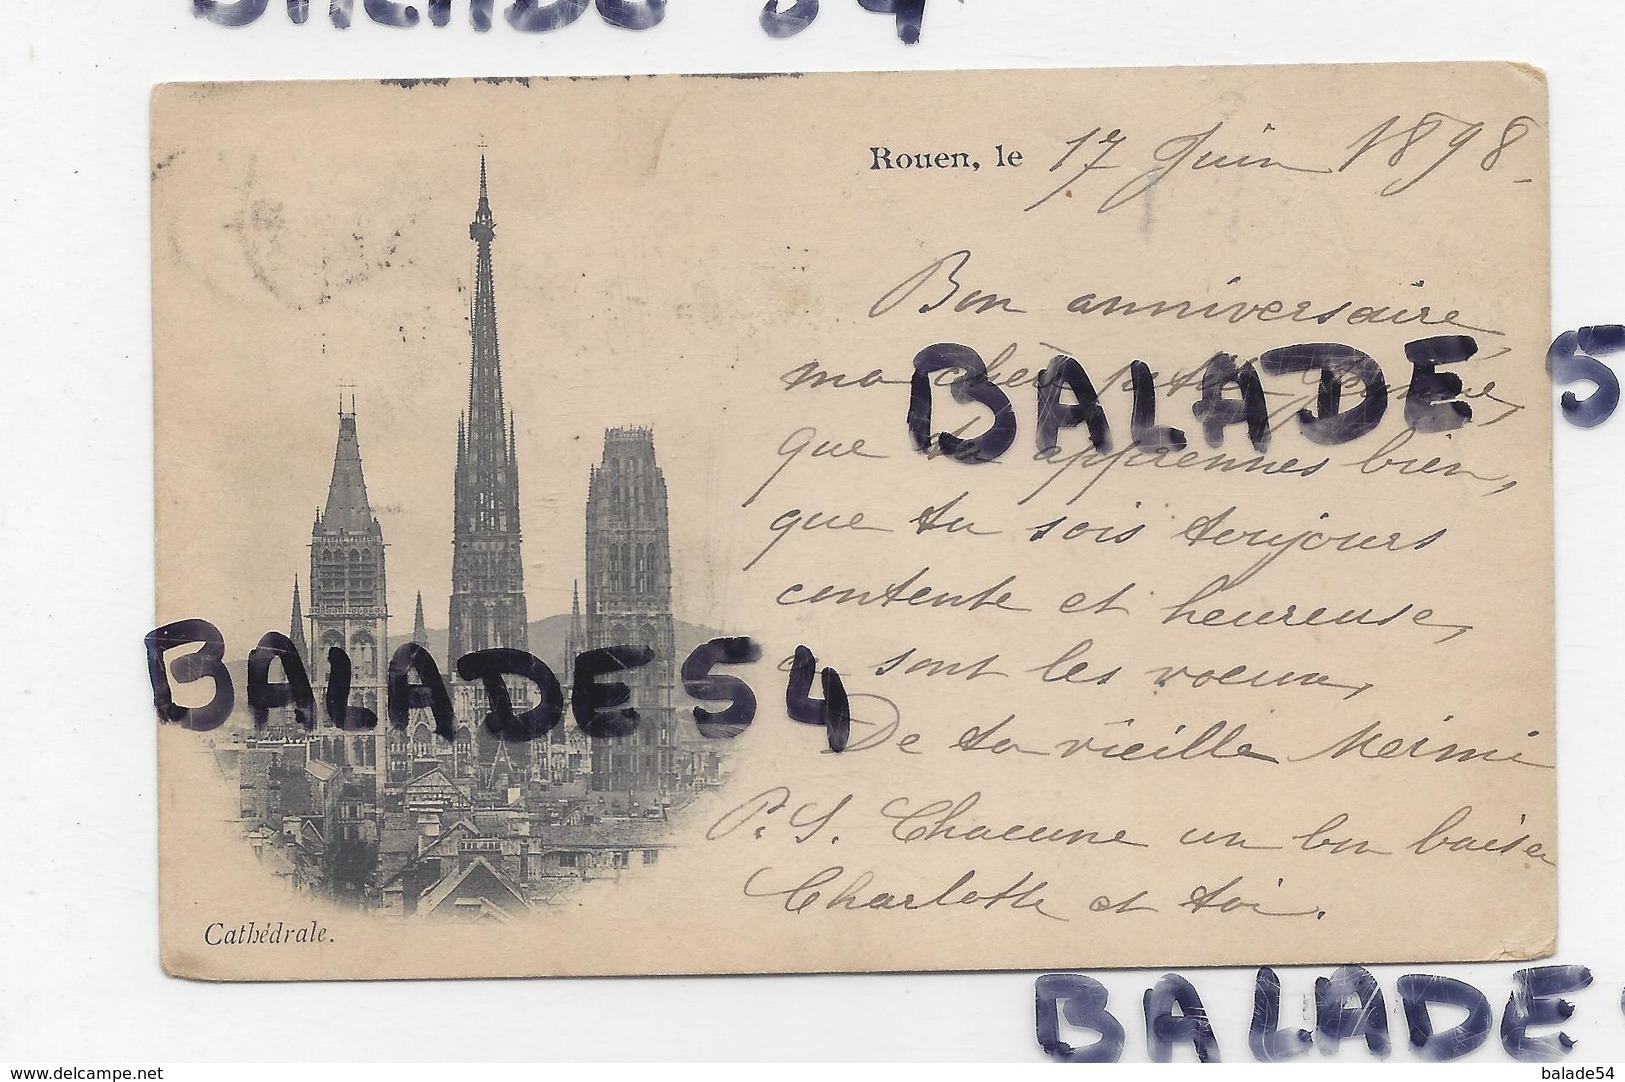 BALADE 54
Rouen, le 17 Juin 1898.
Bon anniversaire,
ma chère petite
BALADE 5
que tu apprennes bien,
que tu sois toujours
contente et heureuse,
ce sont les voeux,
BALADE 54
De ta vieille Meimi
P. S. Chacune un bon baiser
Charlotte et toi.
Cathédrale.
BALADE
www.delcampe.net
balade54